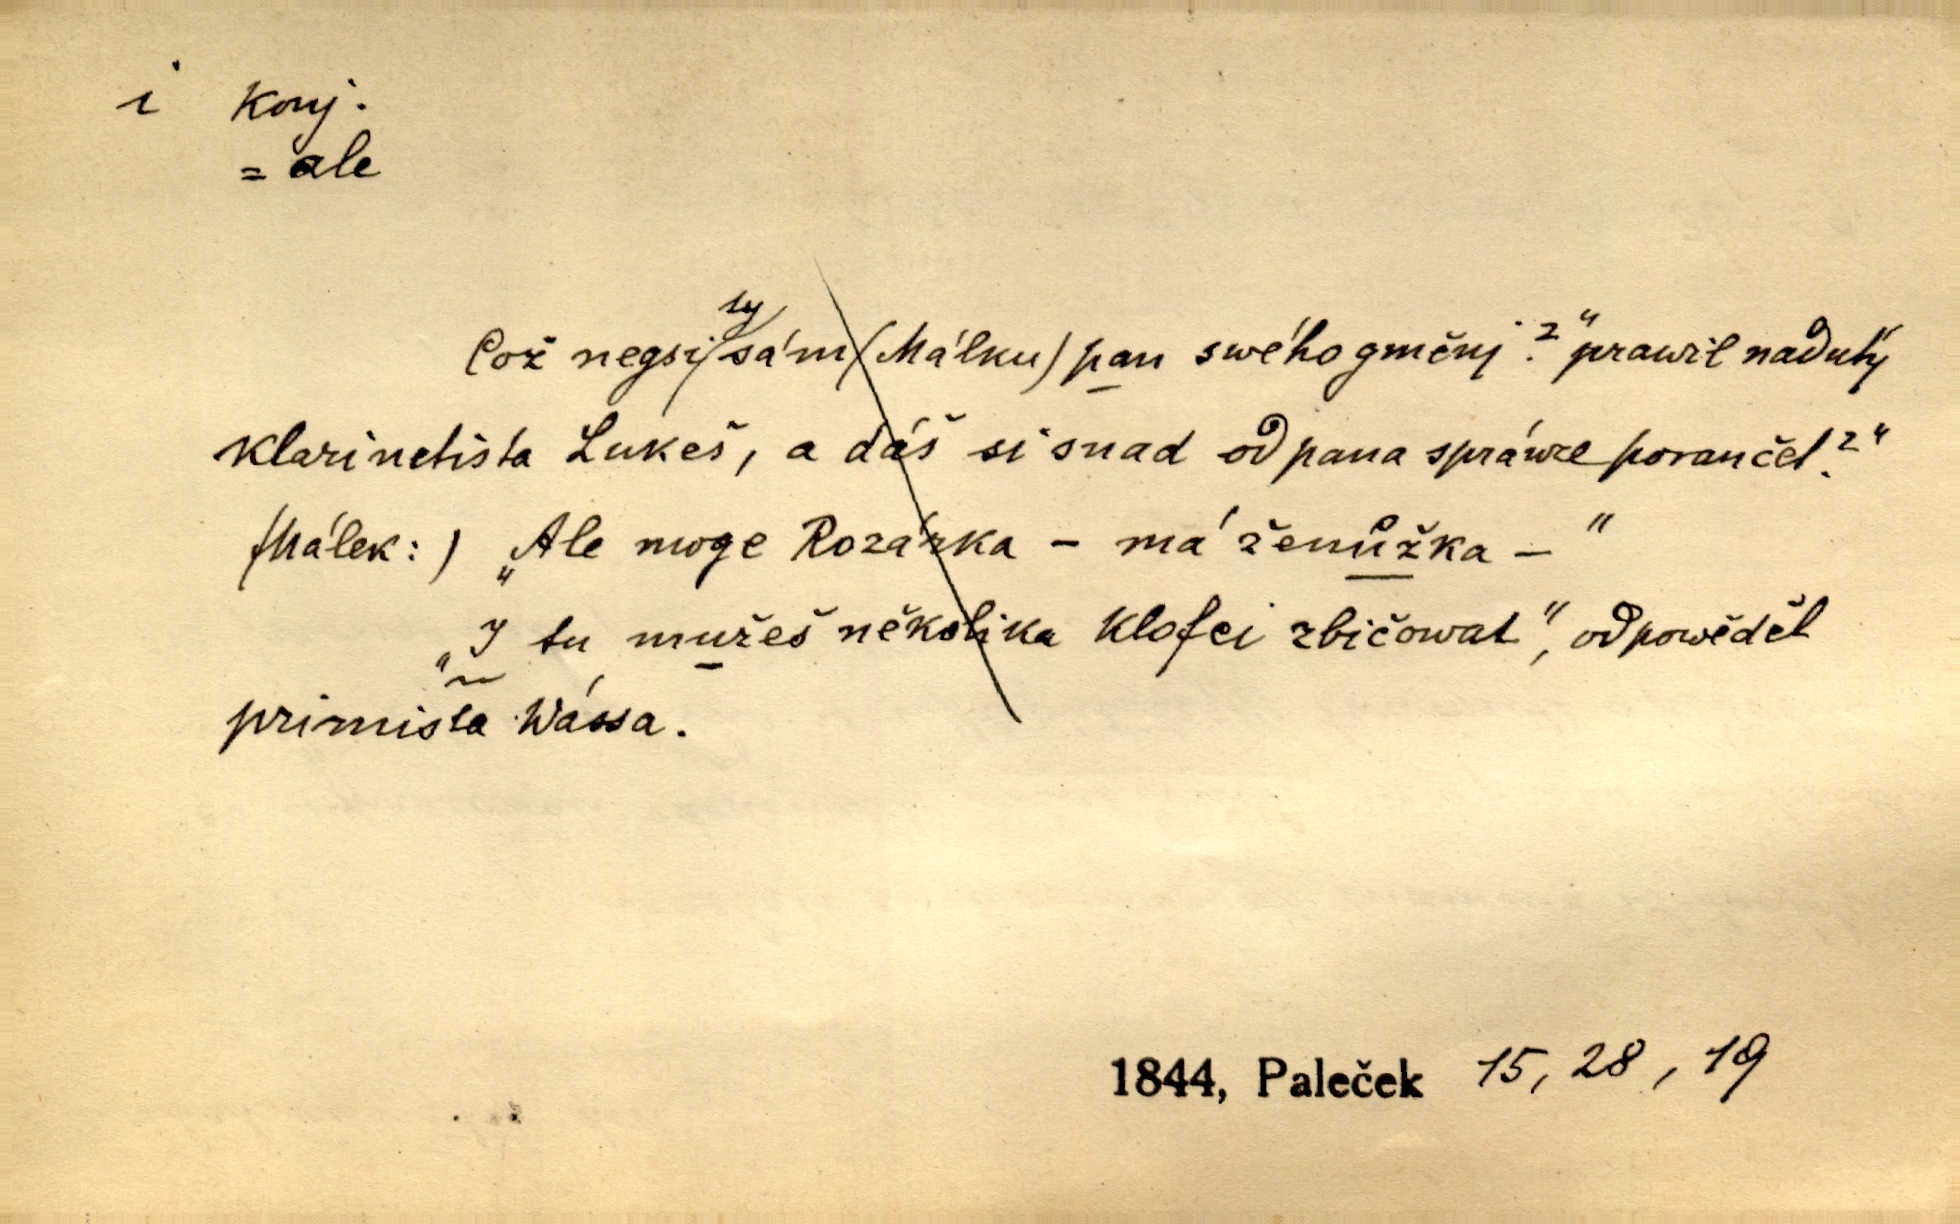 i konj.
= ale
Což negsi ty sám (Málku) pan swého gměnj?" prawil nadutý
klarinetista Lukeš, a dáš si snad od pana spráwce poraučet?"
(Málek:) „Ale moge Rozárka – má ženůžka – "
„I tu mužeš několika klofci zbičowat", odpowěděl
primista Wássa.
1844, Paleček 15, 28, 19